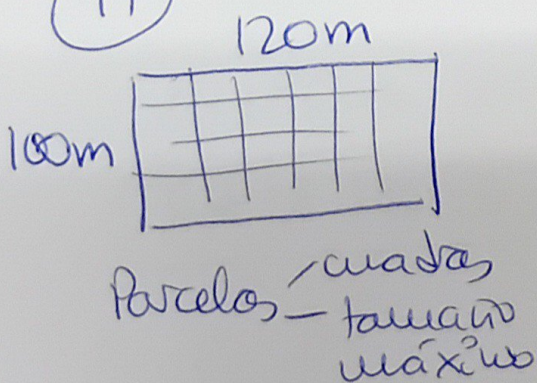 11
120m
100m
Parcelas cuadras
tamaño
máximo